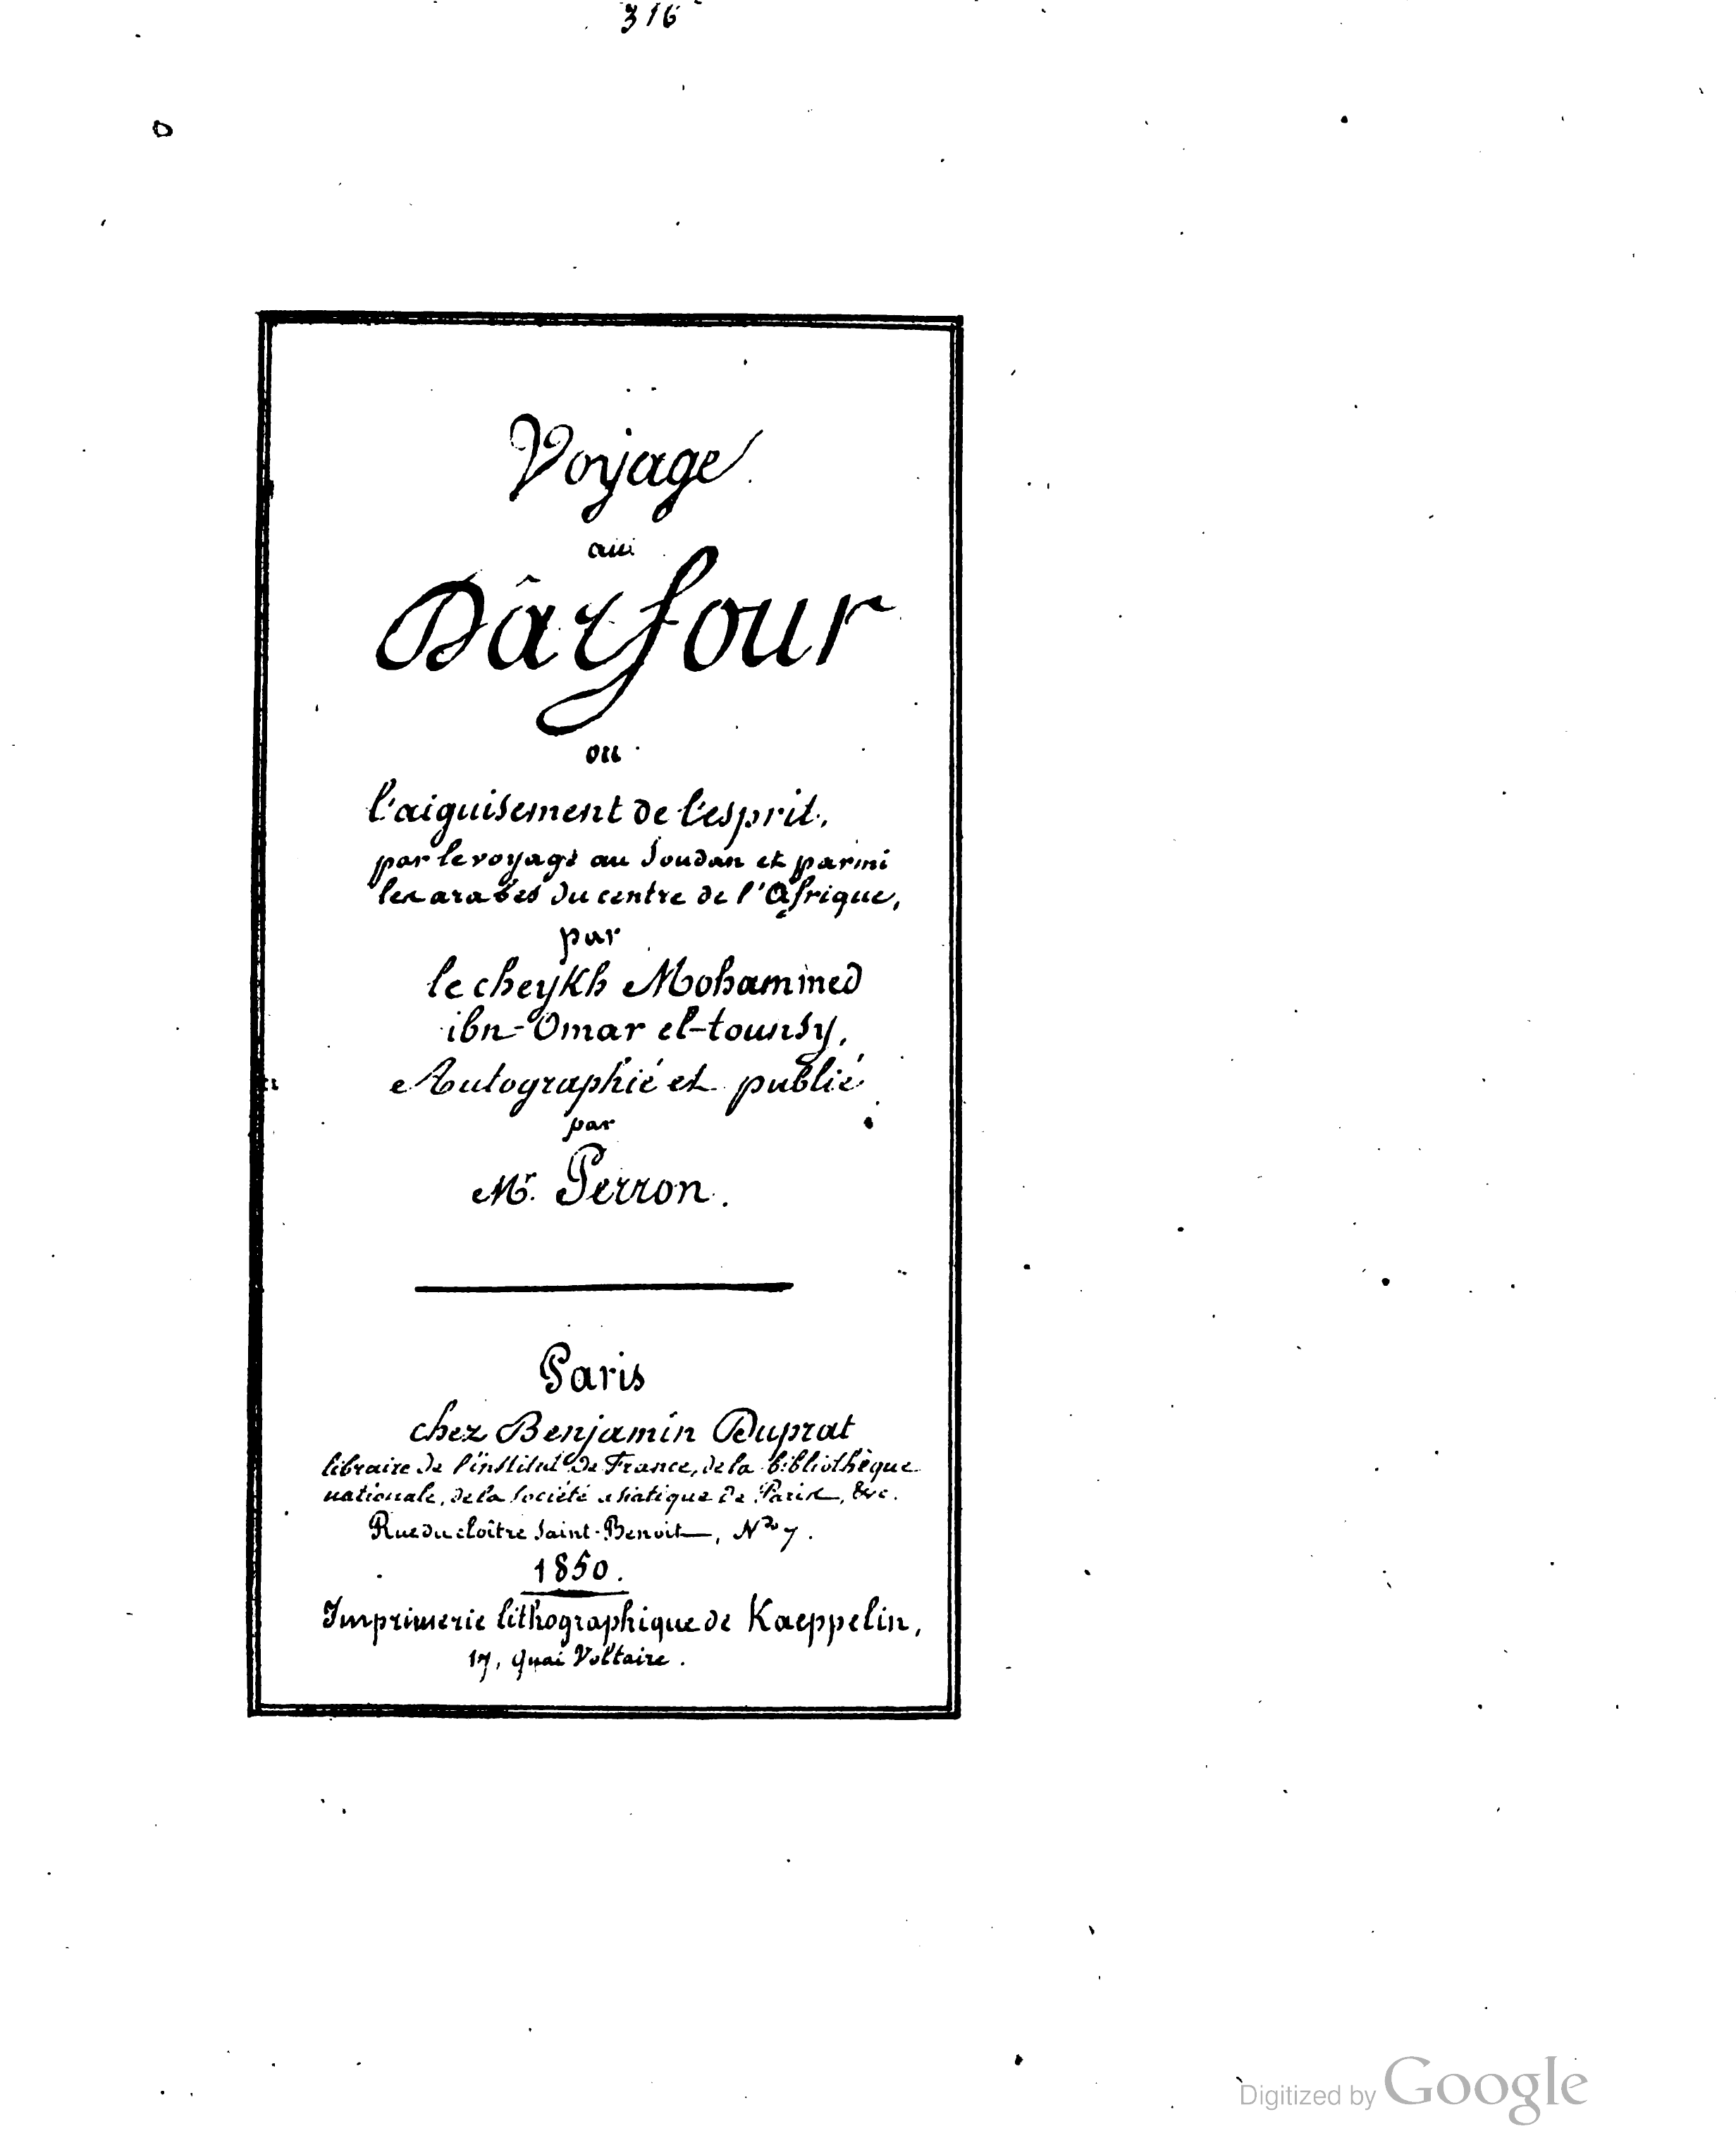 316
Voyage
au
Dârfour
ou
l'aiguisement de l'esprit,
par le voyage au Soudan et parmi
les arabes du centre de l'Afrique,
par
le cheykh Mohammed
ibn-Omar el-tounsy,
Autographié et publié
par
Mr. Perron.
Paris
chez Benjamin Duprat
libraire de l'institut de France, de la bibliothèque
nationale, de la société asiatique de Paris, &c.
Rue du cloître Saint-Benoit, No 7.
1850.
Imprimerie lithographique de Kaeppelin,
17, Quai Voltaire.
Digitized by Google